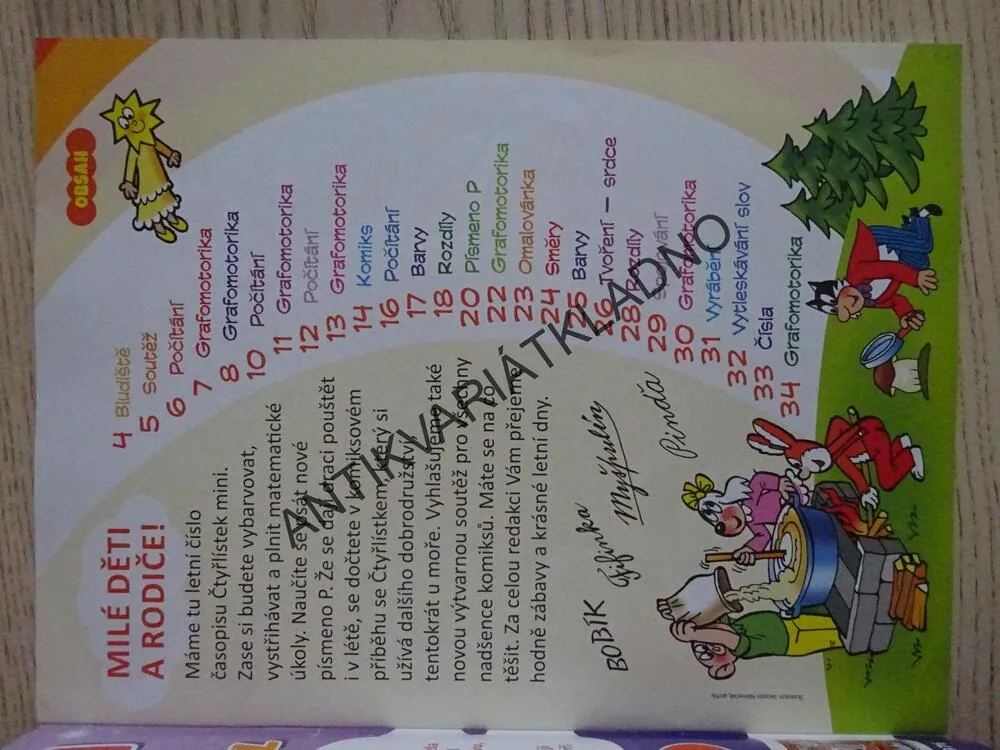 MILÉ DĚTI
A RODIČE!
Máme tu letní číslo
časopisu Čtyřlístek mini.
Zase si budete vybarvovat,
vystřihávat a plnit matematické
úkoly. Naučíte se psát nové
písmeno P. Že se dá draci pouštět
i v létě, se dočtete v komiksovém
příběhu se Čtyřlístkem, který si
užívá dalšího dobrodružství,
tentokrát u moře. Vyhlašujeme také
novou výtvarnou soutěž pro všechny
nadšence komiksů. Máte se na co
těšit. Za celou redakci Vám přejeme
hodně zábavy a krásné letní dny.
BOBÍK
Fifinka
Myšpulín
Pinďa
OBSAH
4 Bludiště
5 Soutěž
6 Počítání
7 Grafomotorika
8 Grafomotorika
10 Počítání
11 Grafomotorika
12 Počítání
13 Grafomotorika
14 Komiks
16 Počítání
17 Barvy
18 Rozdíly
20 Písmeno P
22 Grafomotorika
23 Omalovánka
24 Směry
25 Barvy
26 Tvoření – srdce
28 Rozdíly
29
30 Grafomotorika
31 Vyrábění
32 Vytleskávání slov
33 Čísla
34 Grafomotorika
ANTIKVARIÁTKLADNO